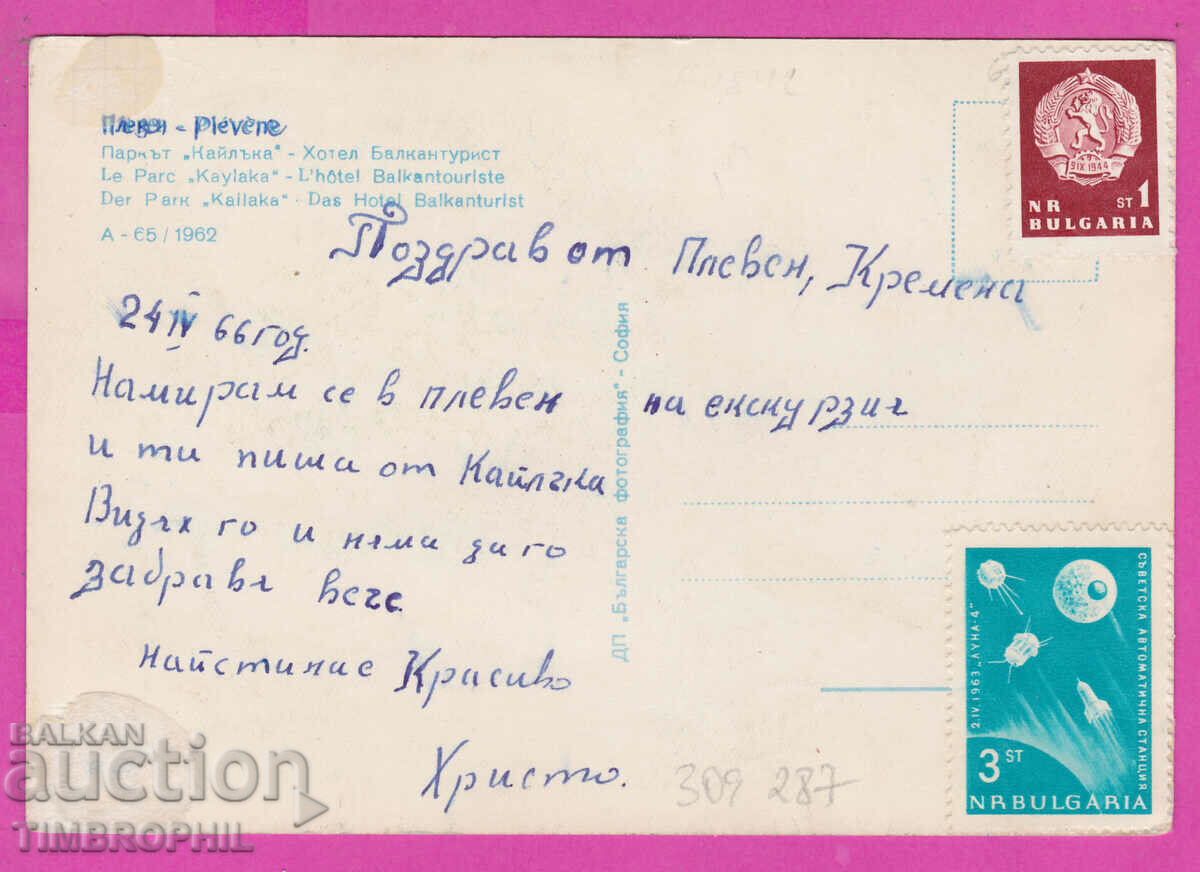 Плевен - Plévène
Паркът „Кайлъка" - Хотел Балкантурист
Le Parc „Kaylaka" - L'hôtel Balkantouriste
Der Park „Kailaka" - Das Hotel Balkanturist
А - 65 / 1962
9 IX 1944
NR ST 1
BULGARIA
Поздрав от Плевен, Кремена
24 IV 66 год.
Намирам се в плевен на екскурзия
и ти пиша от Кайлъка
Видях го и няма да го
забравя вече
найстинас Красиво
Христо.
309 287
ДП „Българска фотография" - София
2.IV.1963 „ЛУНА-4"
СЪВЕТСКА АВТОМАТИЧНА СТАНЦИЯ
3 ST
NRBULGARIA
BALKAN
auction
TIMBROPHIL